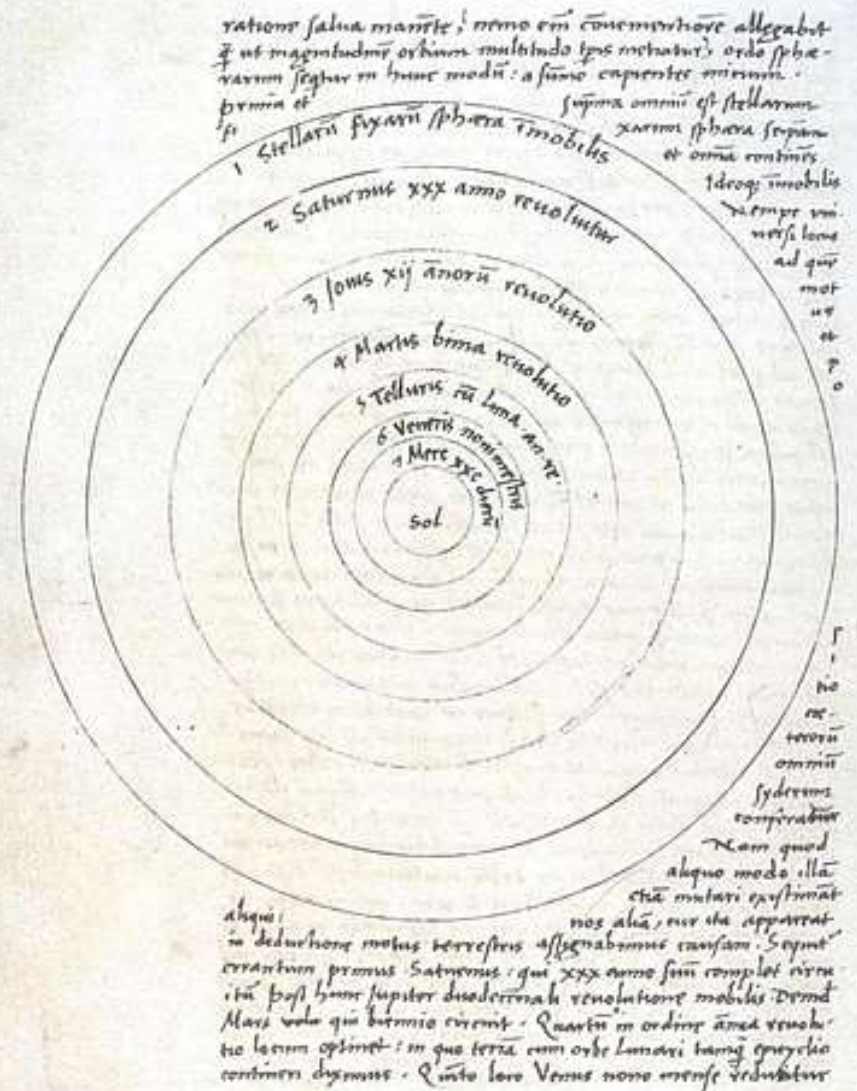 ratione salua manēte, nemo em̄ cōuenientiorē allegabit
q̄ ut magnitudinē orbium multitudo tp̄is metiatur, ordo sphæ-
rarum seqtur in hunc modū: a sumo capientes initium.
prima et suprema omniū est stellarum
fi xarum sphæra seipsam
et omīa continēs
Ideoq; īmobilis
Nempe vni-
uersi locus
ad quē
mot
us
et
p
o
1 Stellarū fixarū sphæra īmobilis
2 Saturnus xxx anno reuoluitur
3 Jouis xij ānorū reuolutio
4 Martis bima reuolutio
5 Telluris cū luna · an · re
6 Veneris nonimestris
7 Merc xxc dierū
Sol
s
i
tio
ce-
terorū
omniū
syderum
conferatur
Nam quod
aliquo modo illā
etiā mutari existimāt
aliqui: nos aliā, cur ita appareat
in deductione motus terrestris assignabimus causam. Sequit
errantium primus Saturnus: qui xxx anno suū complet circu
itū post hunc Jupiter duodecēnali reuolutione mobilis Deind
Mars qui biennio circuit. Quartū in ordine ānua reuolu-
tio locum optinet: in quo terrā cum orbe lunari tamq̄ epicyclio
contineri diximus. Quinto loco Venus nono mense reducitur